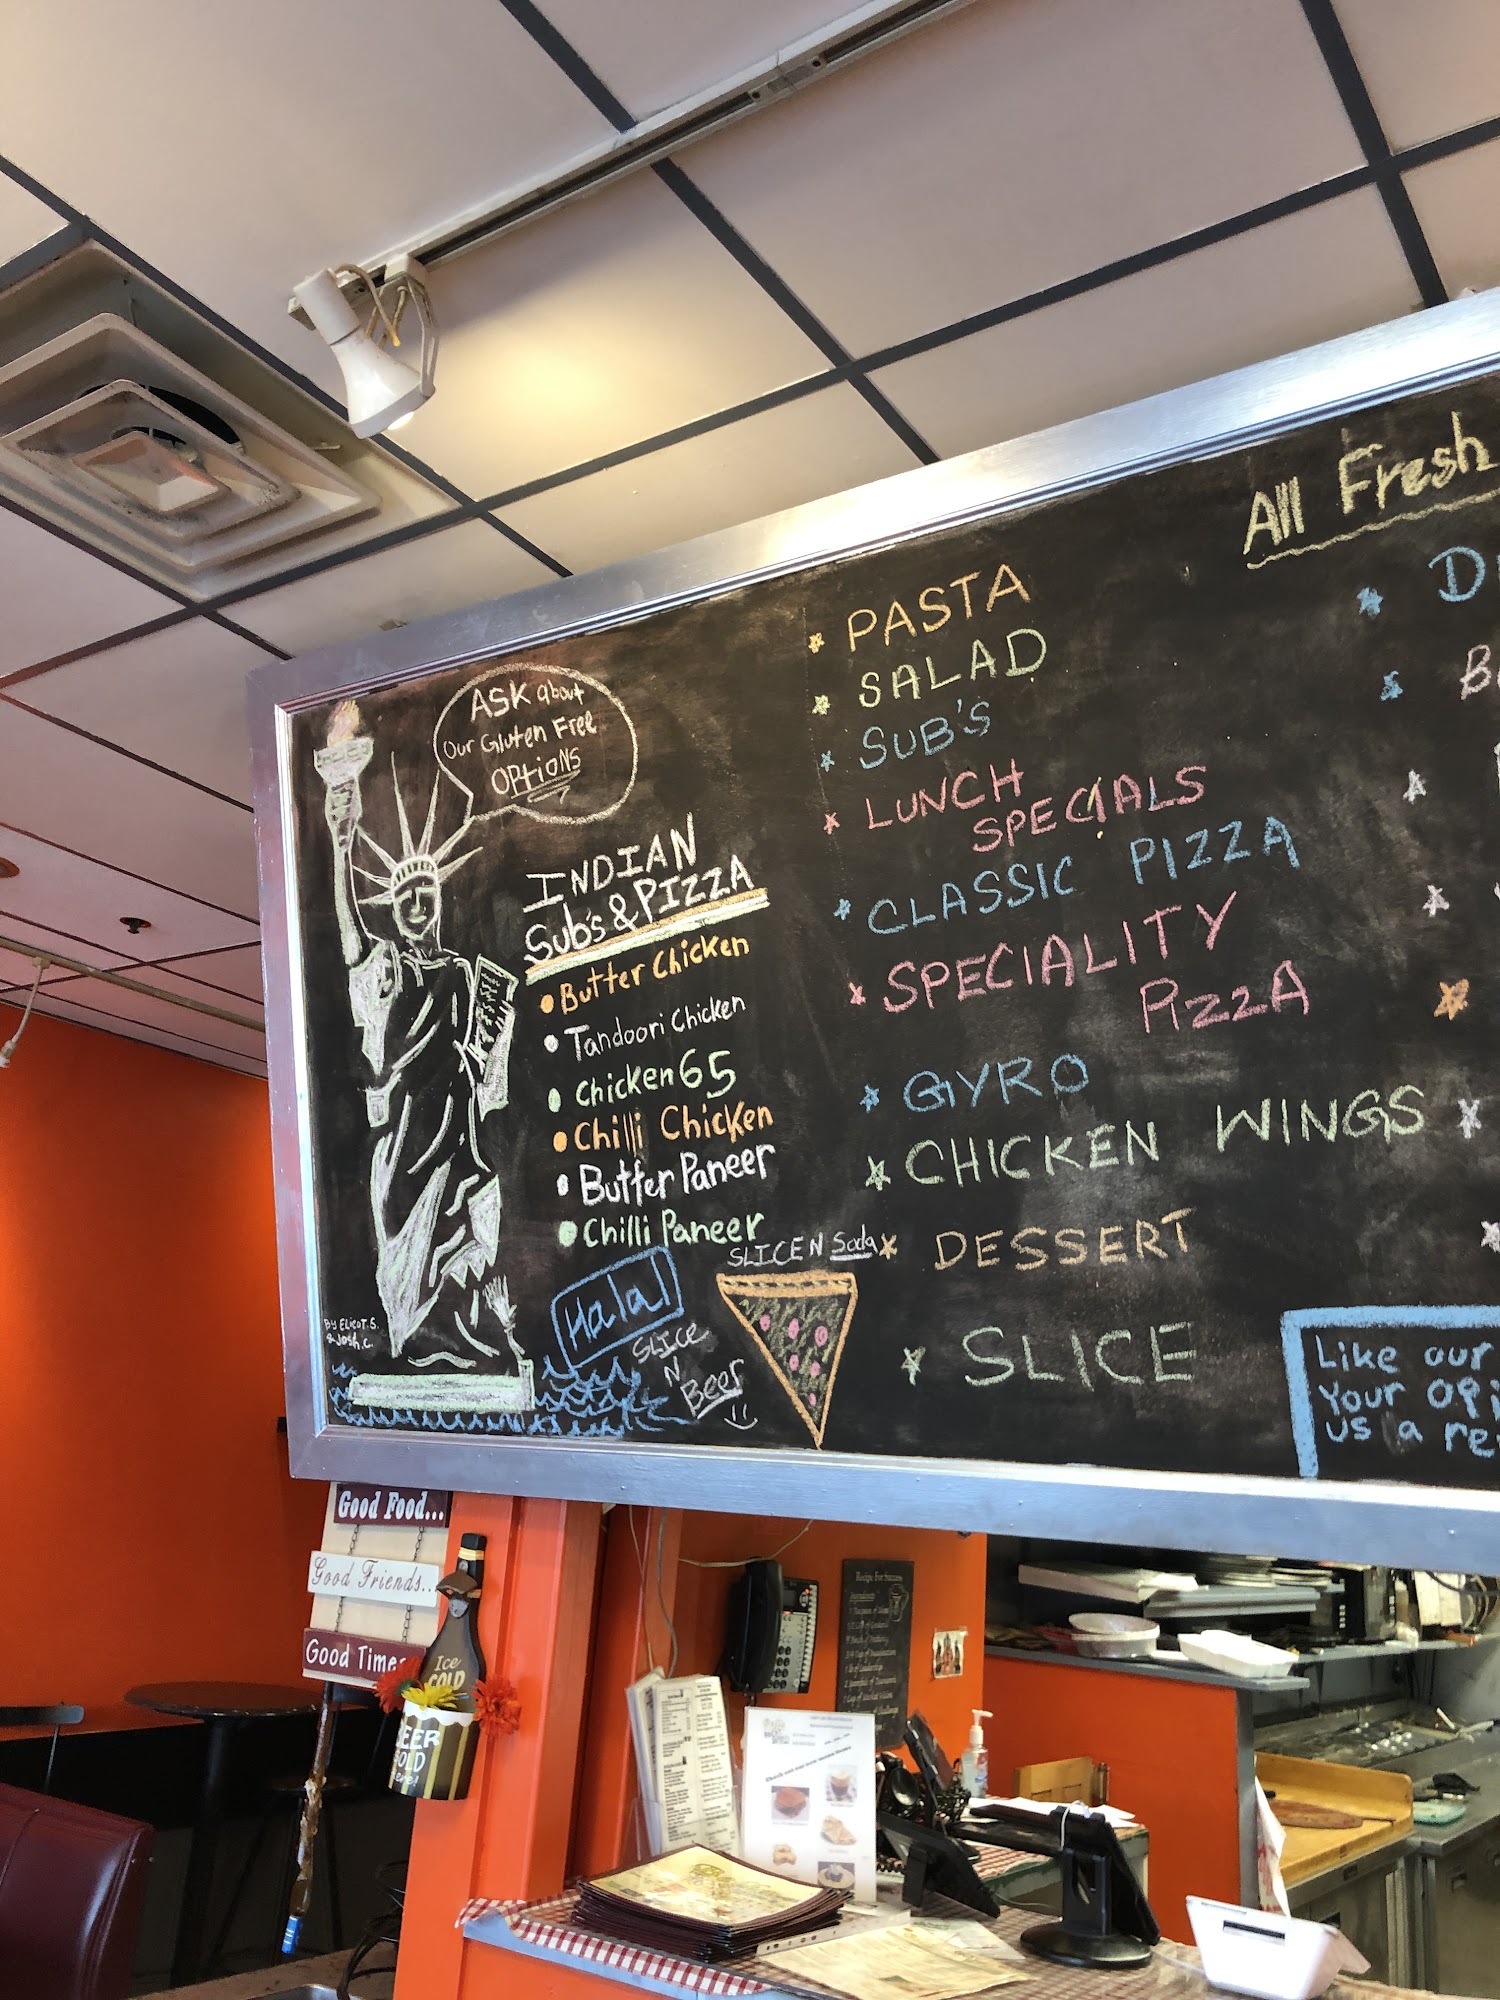 ASK about
Our Gluten Free
OPTIONS
INDIAN
Sub's & PIZZA
Butter Chicken
Tandoori Chicken
Chicken 65
Chilli Chicken
Butter Paneer
Chilli Paneer
Halal
SLICE
N
Beer
SLICE N Soda
BY ELIOT.S.
& JOSH.C.
All Fresh
PASTA
SALAD
SUB'S
LUNCH
SPECIALS
CLASSIC PIZZA
SPECIALITY
PIZZA
GYRO
CHICKEN WINGS
DESSERT
SLICE
Like our
us a
Good Food...
Good Friends...
Good Times
Ice
COLD
Recipe For Success